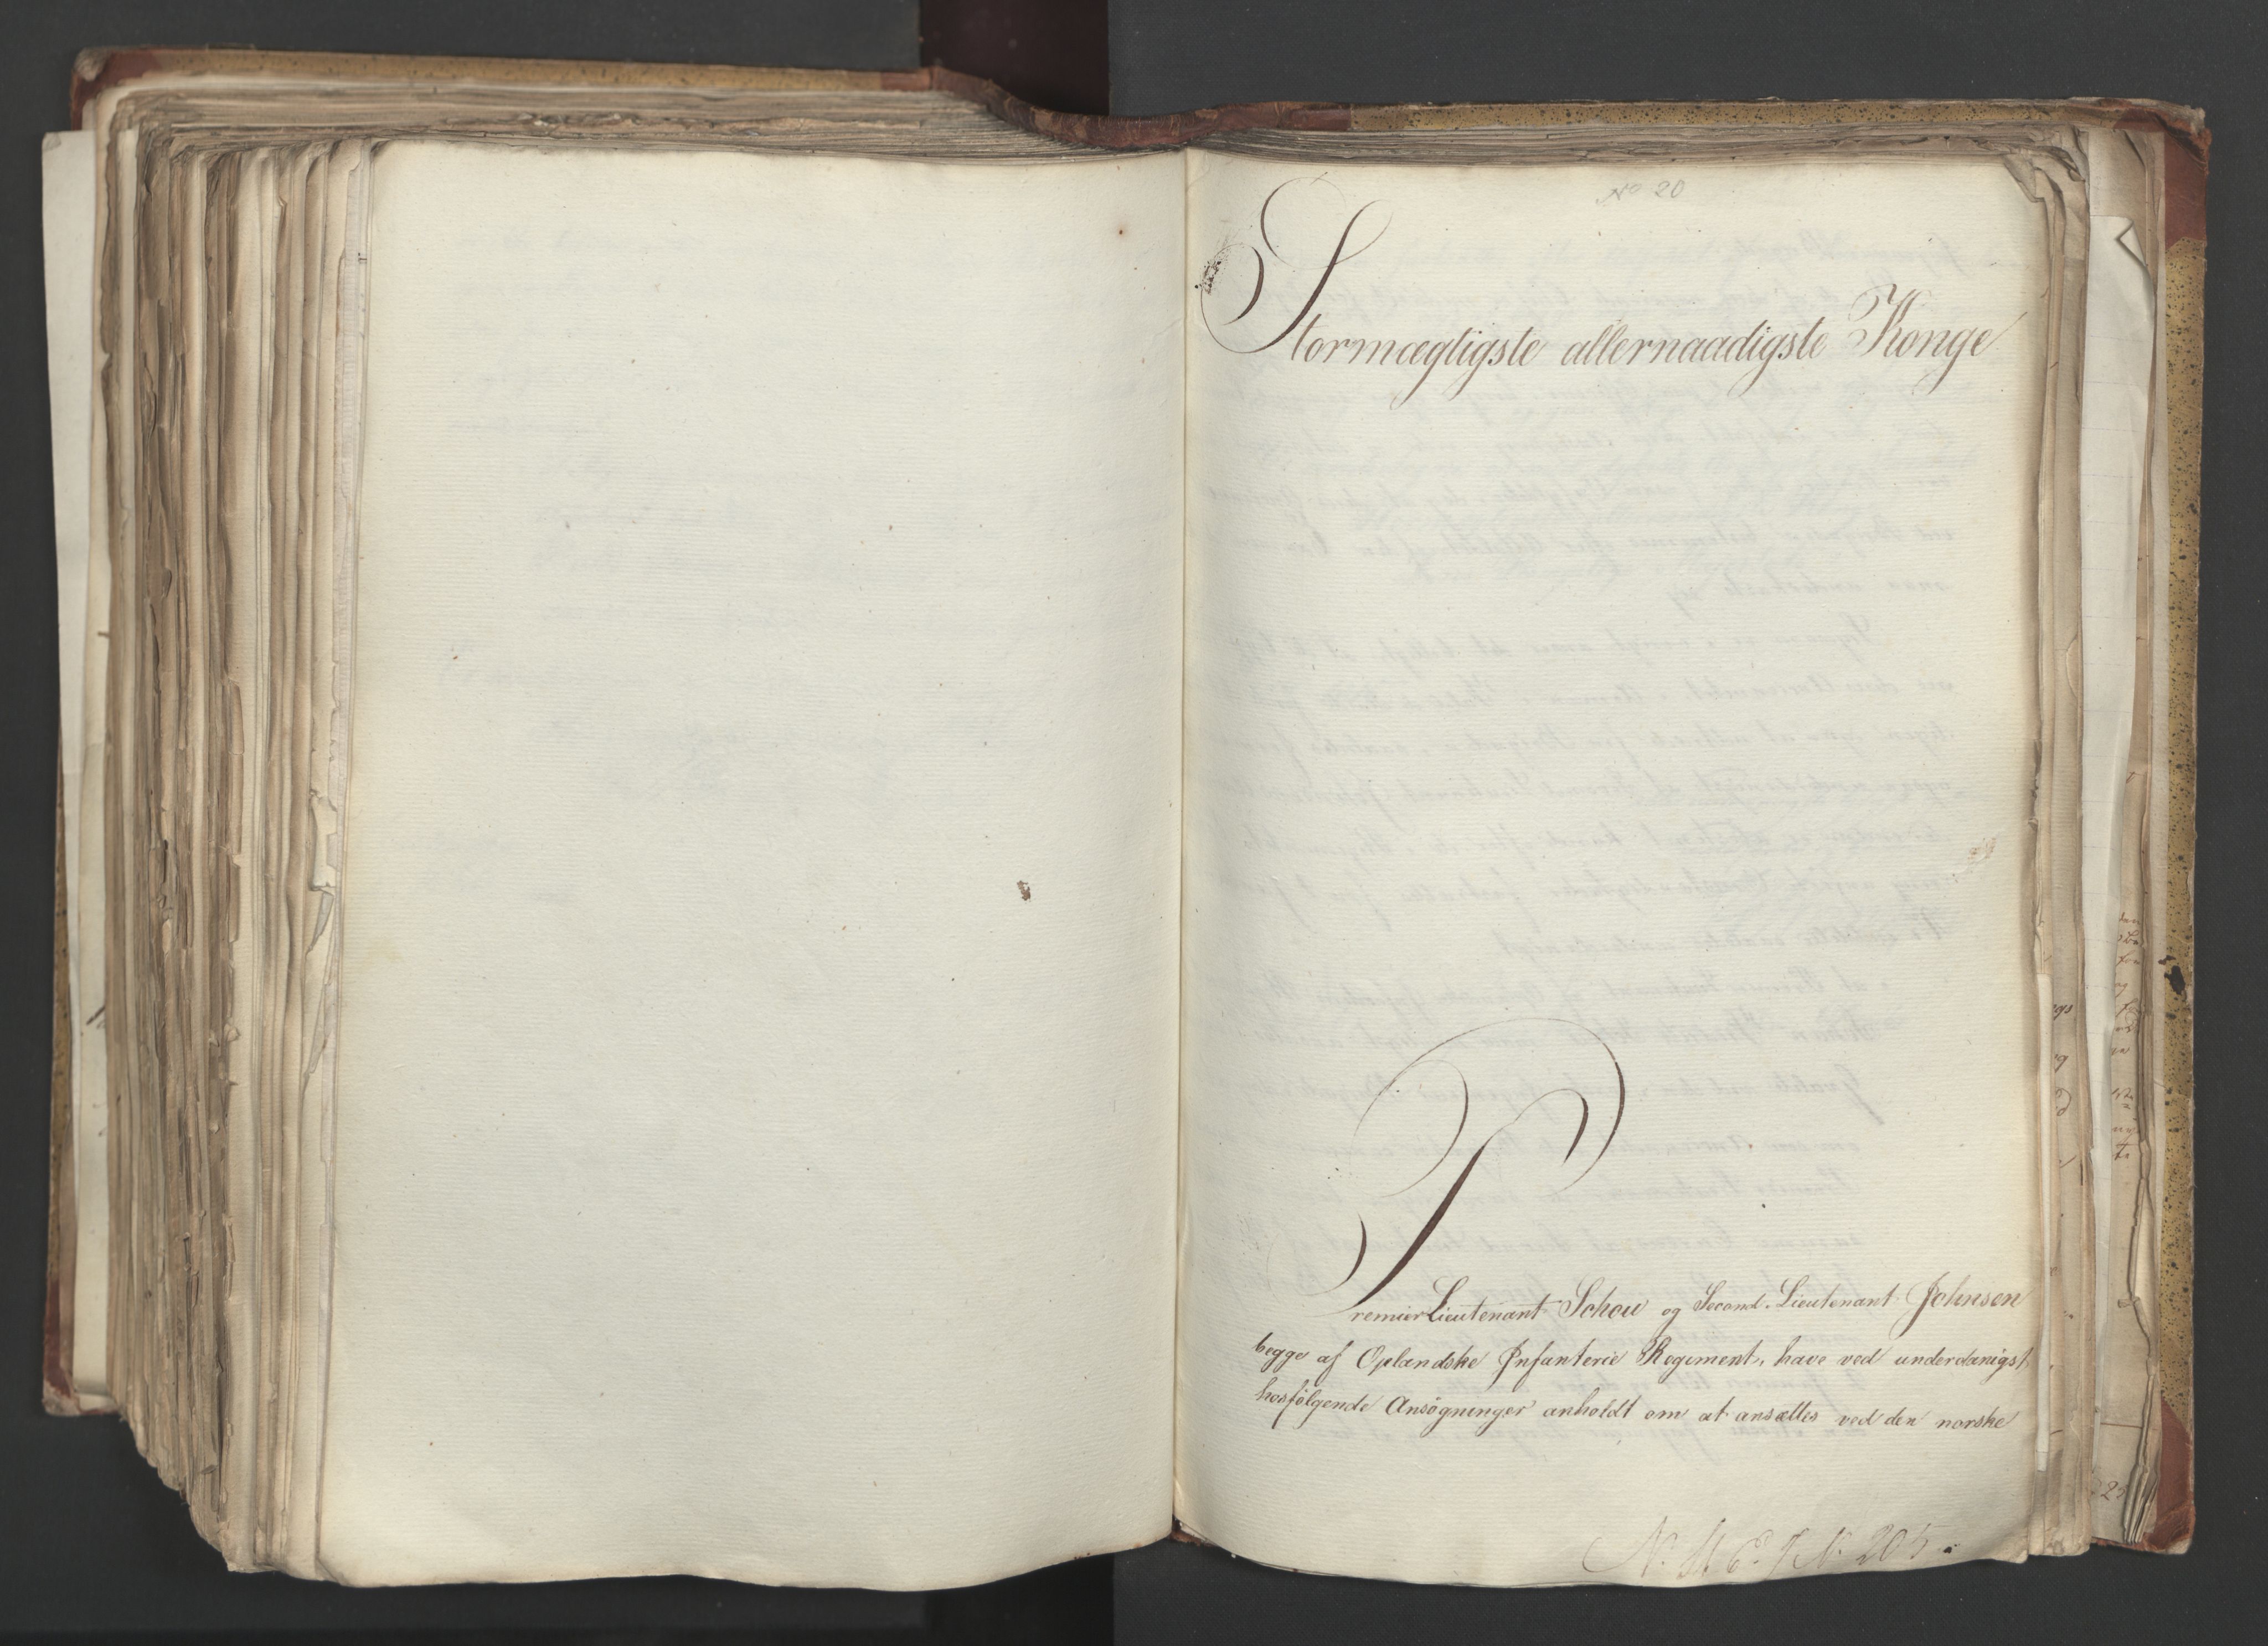 No 20
Stormægtigste allernaadigste Konge
Premier Lieutenant Schou og Second-Lieutenant Johnsen
begge af Oplandske Infanterie Regiment, have ved underdanigst
hosfølgende Ansøgninger anholdt om at ansættes ved den norske
N. St. C. J No 205.